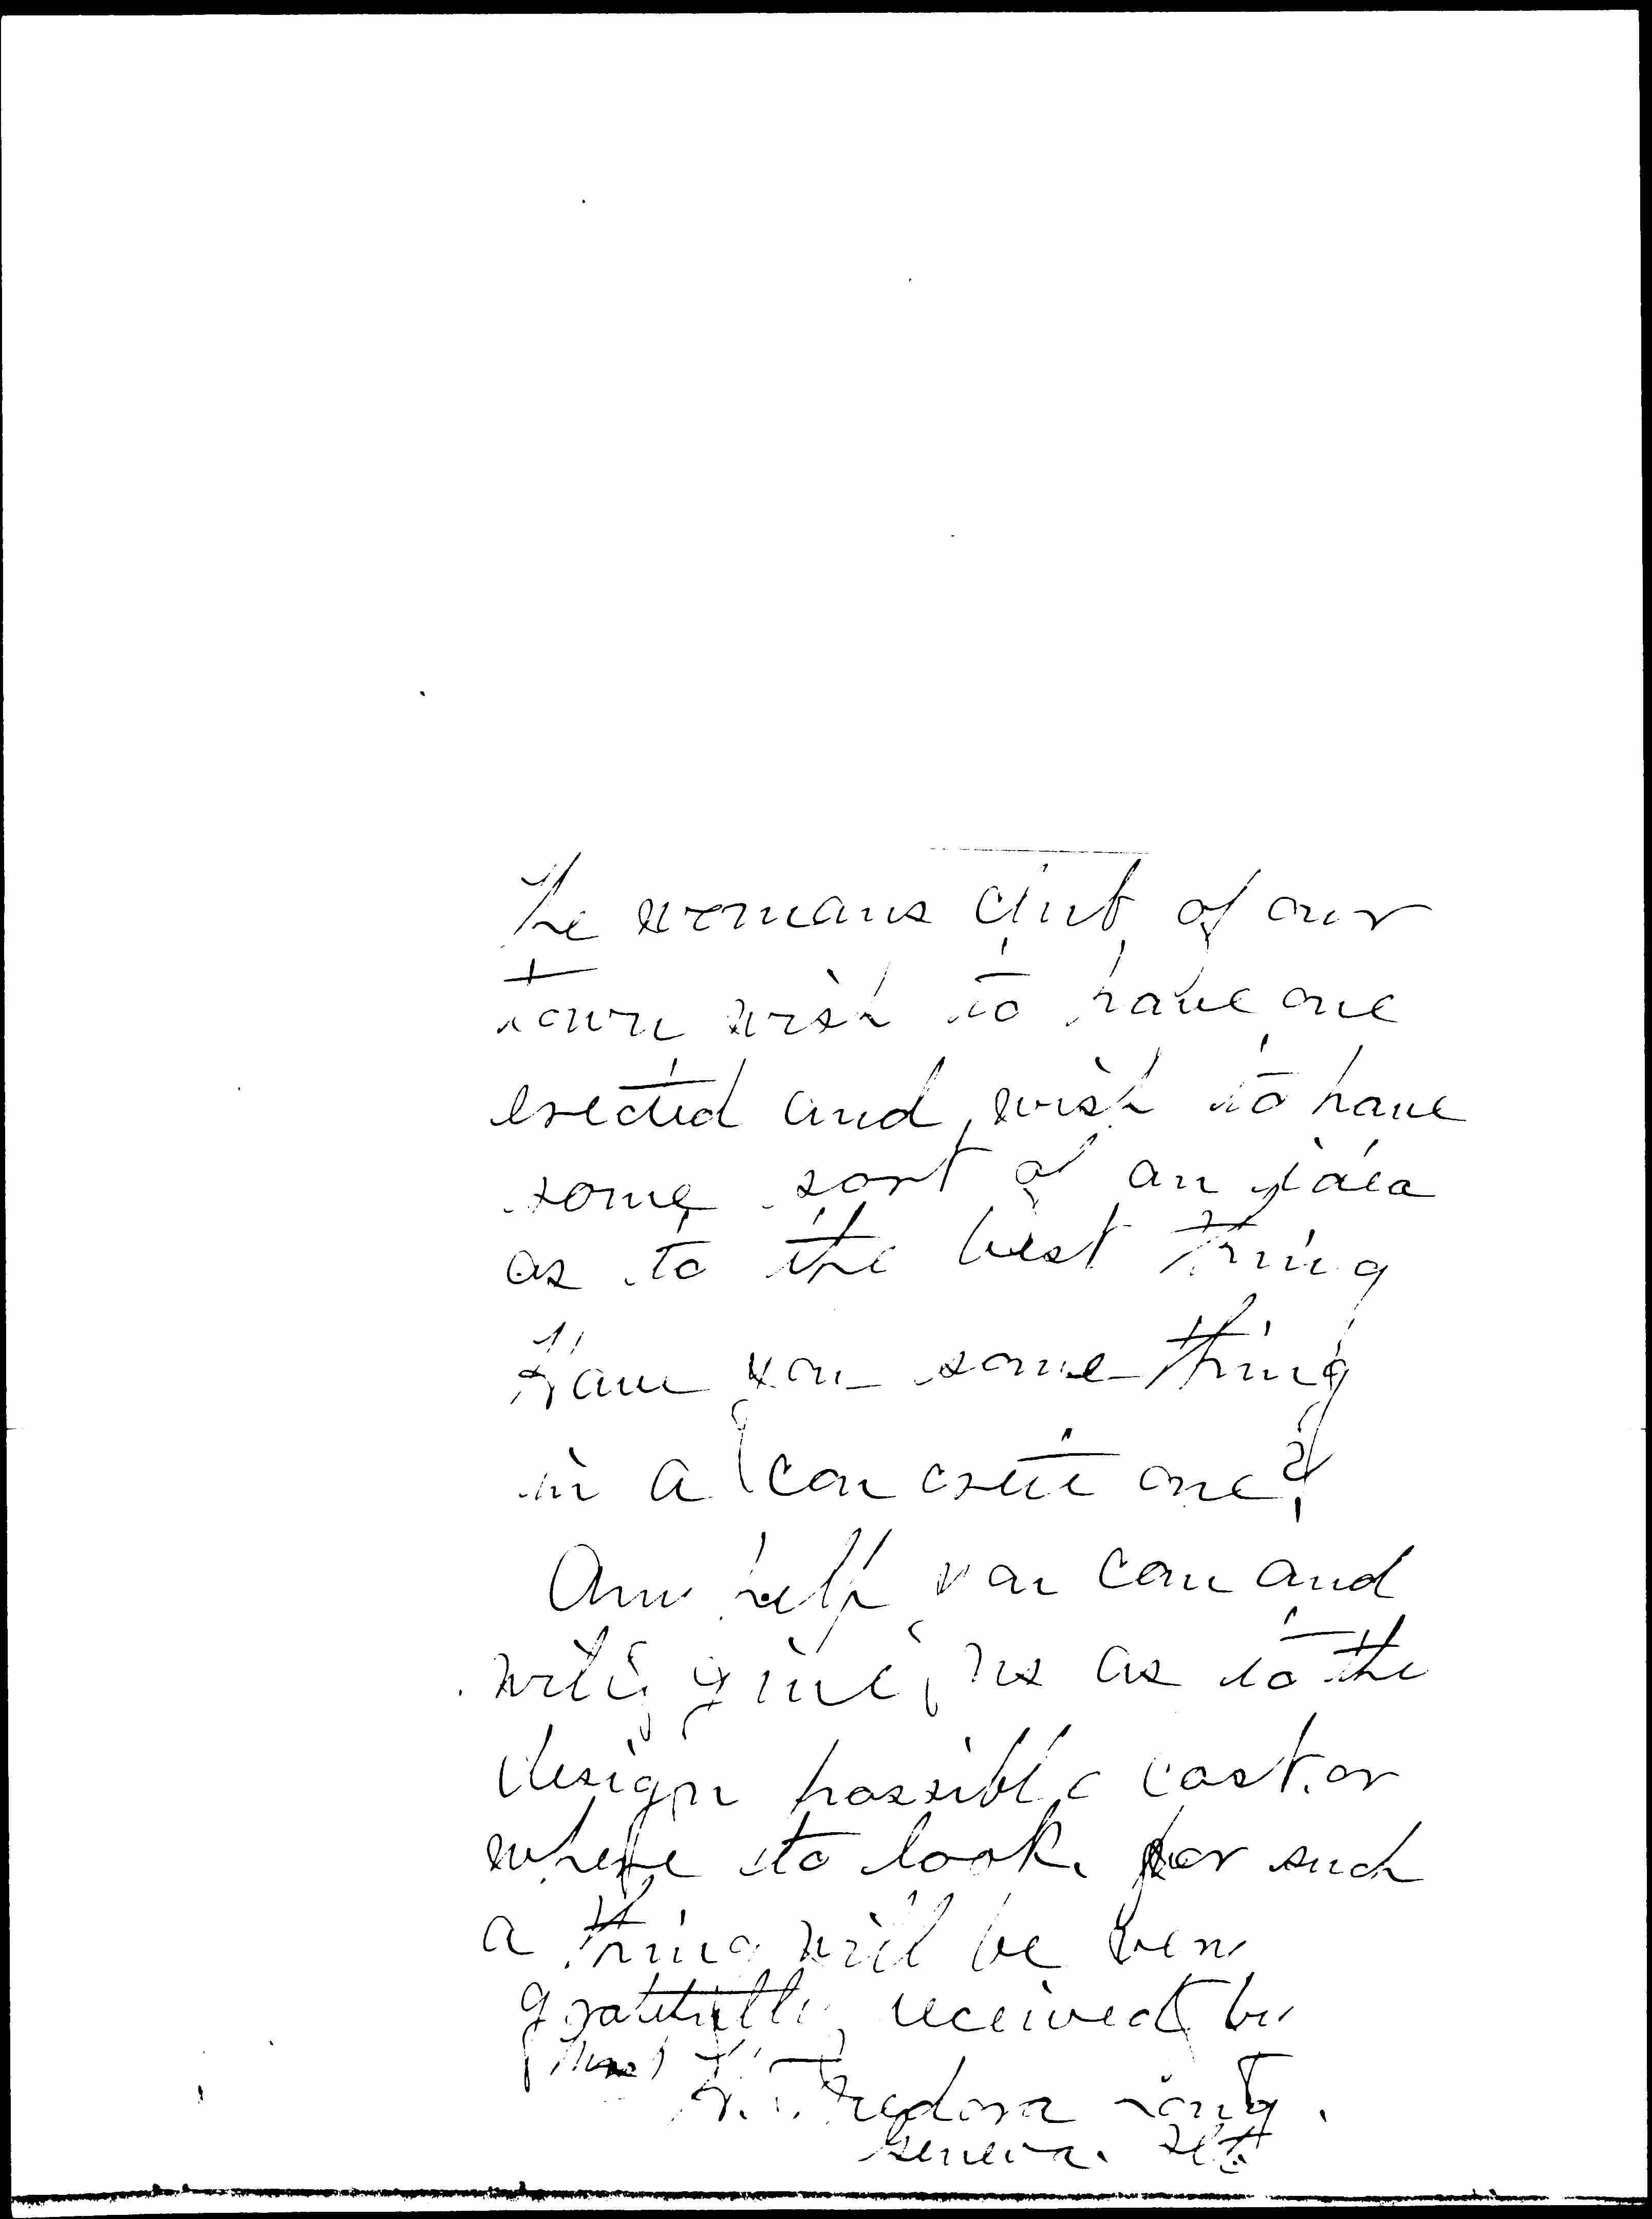 The womans club of our
town wish to have one
erected and wish to have
some sort of an idea
as to the best thing
Have you some-thing
in a concrete one?
Any help you can and
will give us as to the
design possible cost or
where to look for such
a thing will be very
gratefully received by
(Mrs)
Geneva